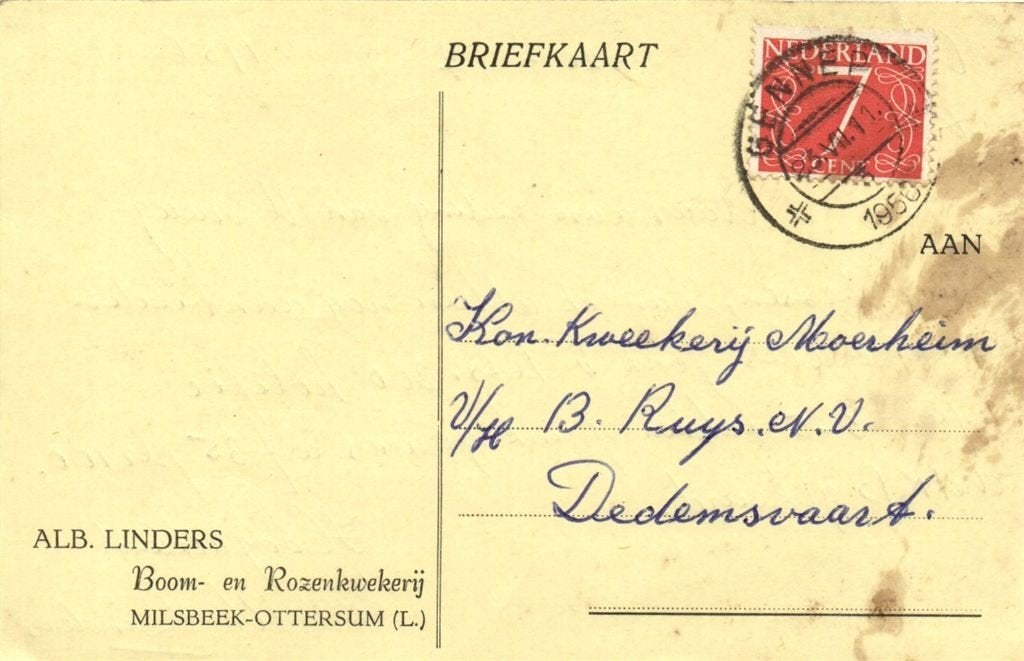 BRIEFKAART
NEDERLAND
7
CENT
GENNEP
1956
AAN
Kon. Kweekerij Moerheim
V/H B. Ruys. N.V.
Dedemsvaart.
ALB. LINDERS
Boom- en Rozenkwekerij
MILSBEEK-OTTERSUM (L.)